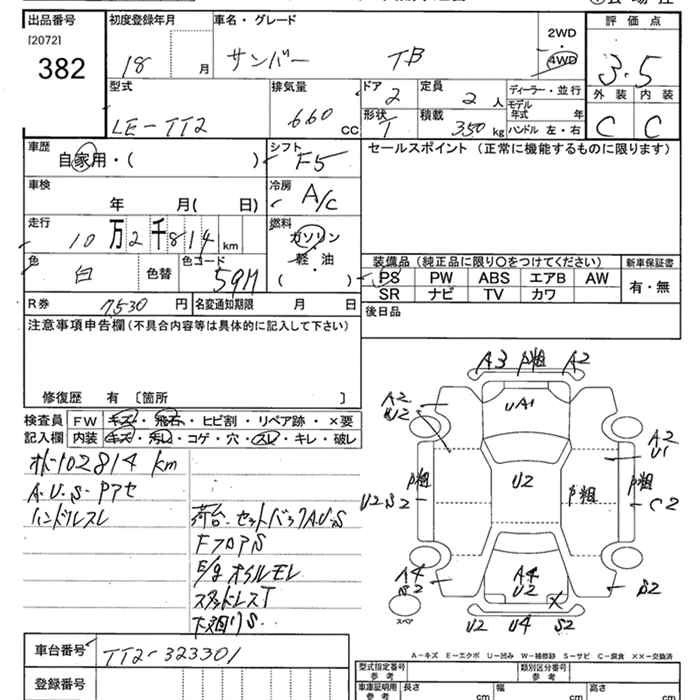 出品番号 初度登録年月 車名・グレード 評価点
[2072] 2WD
382 18 月 サンバー TB ・ 4WD 3.5
型式 排気量 ドア 定員 ディーラー・並行 外装 内装
2 2 人 モデル年式 年
LE-TT2 660 cc 形状 T 積載 350 kg ハンドル 左・右 C C
車歴 自家用・( ) シフト F5 セールスポイント (正常に機能するものに限ります)
車検 年 月( 日) 冷房 A/C
走行 10万2千814 km 燃料 ガソリン
軽・油
( )
色 白 色替 色コード 59M
装備品 (純正品に限り○をつけてください) 新車保証書
PS PW ABS エアB AW 有・無
SR ナビ TV カワ
R券 7530 円 名変通知期限 月 日 後日品
注意事項申告欄 (不具合内容等は具体的に記入して下さい)
修復歴 有 〔箇所 〕
検査員 FW キズ・飛石・ヒビ割・リペア跡・×要
記入欄 内装 キズ・汚れ・コゲ・穴・スレ・キレ・破レ
オト102814 km
A.U.S-Pアセ
ハンドルスレ 荷台.セットバックA.U.S
FフロアS
E/gオイルモレ
スタッドレスT
下廻りS
A3 P粗 A2
UA1
A2
U2
A2
U1
P粗 U2 P粗 P粗
U2.S2 C2
A4
S2
A4
U2
S2
スペア
U2 U4 S2
A-キズ E-エクボ U-凹み W-補修跡 S-サビ C-腐食 ××-交換済
車台番号 TT2-323301
登録番号
型式指定番号 参考 類別区分番号 参考
車庫証明用 参考 長さ cm 幅 cm 高さ cm